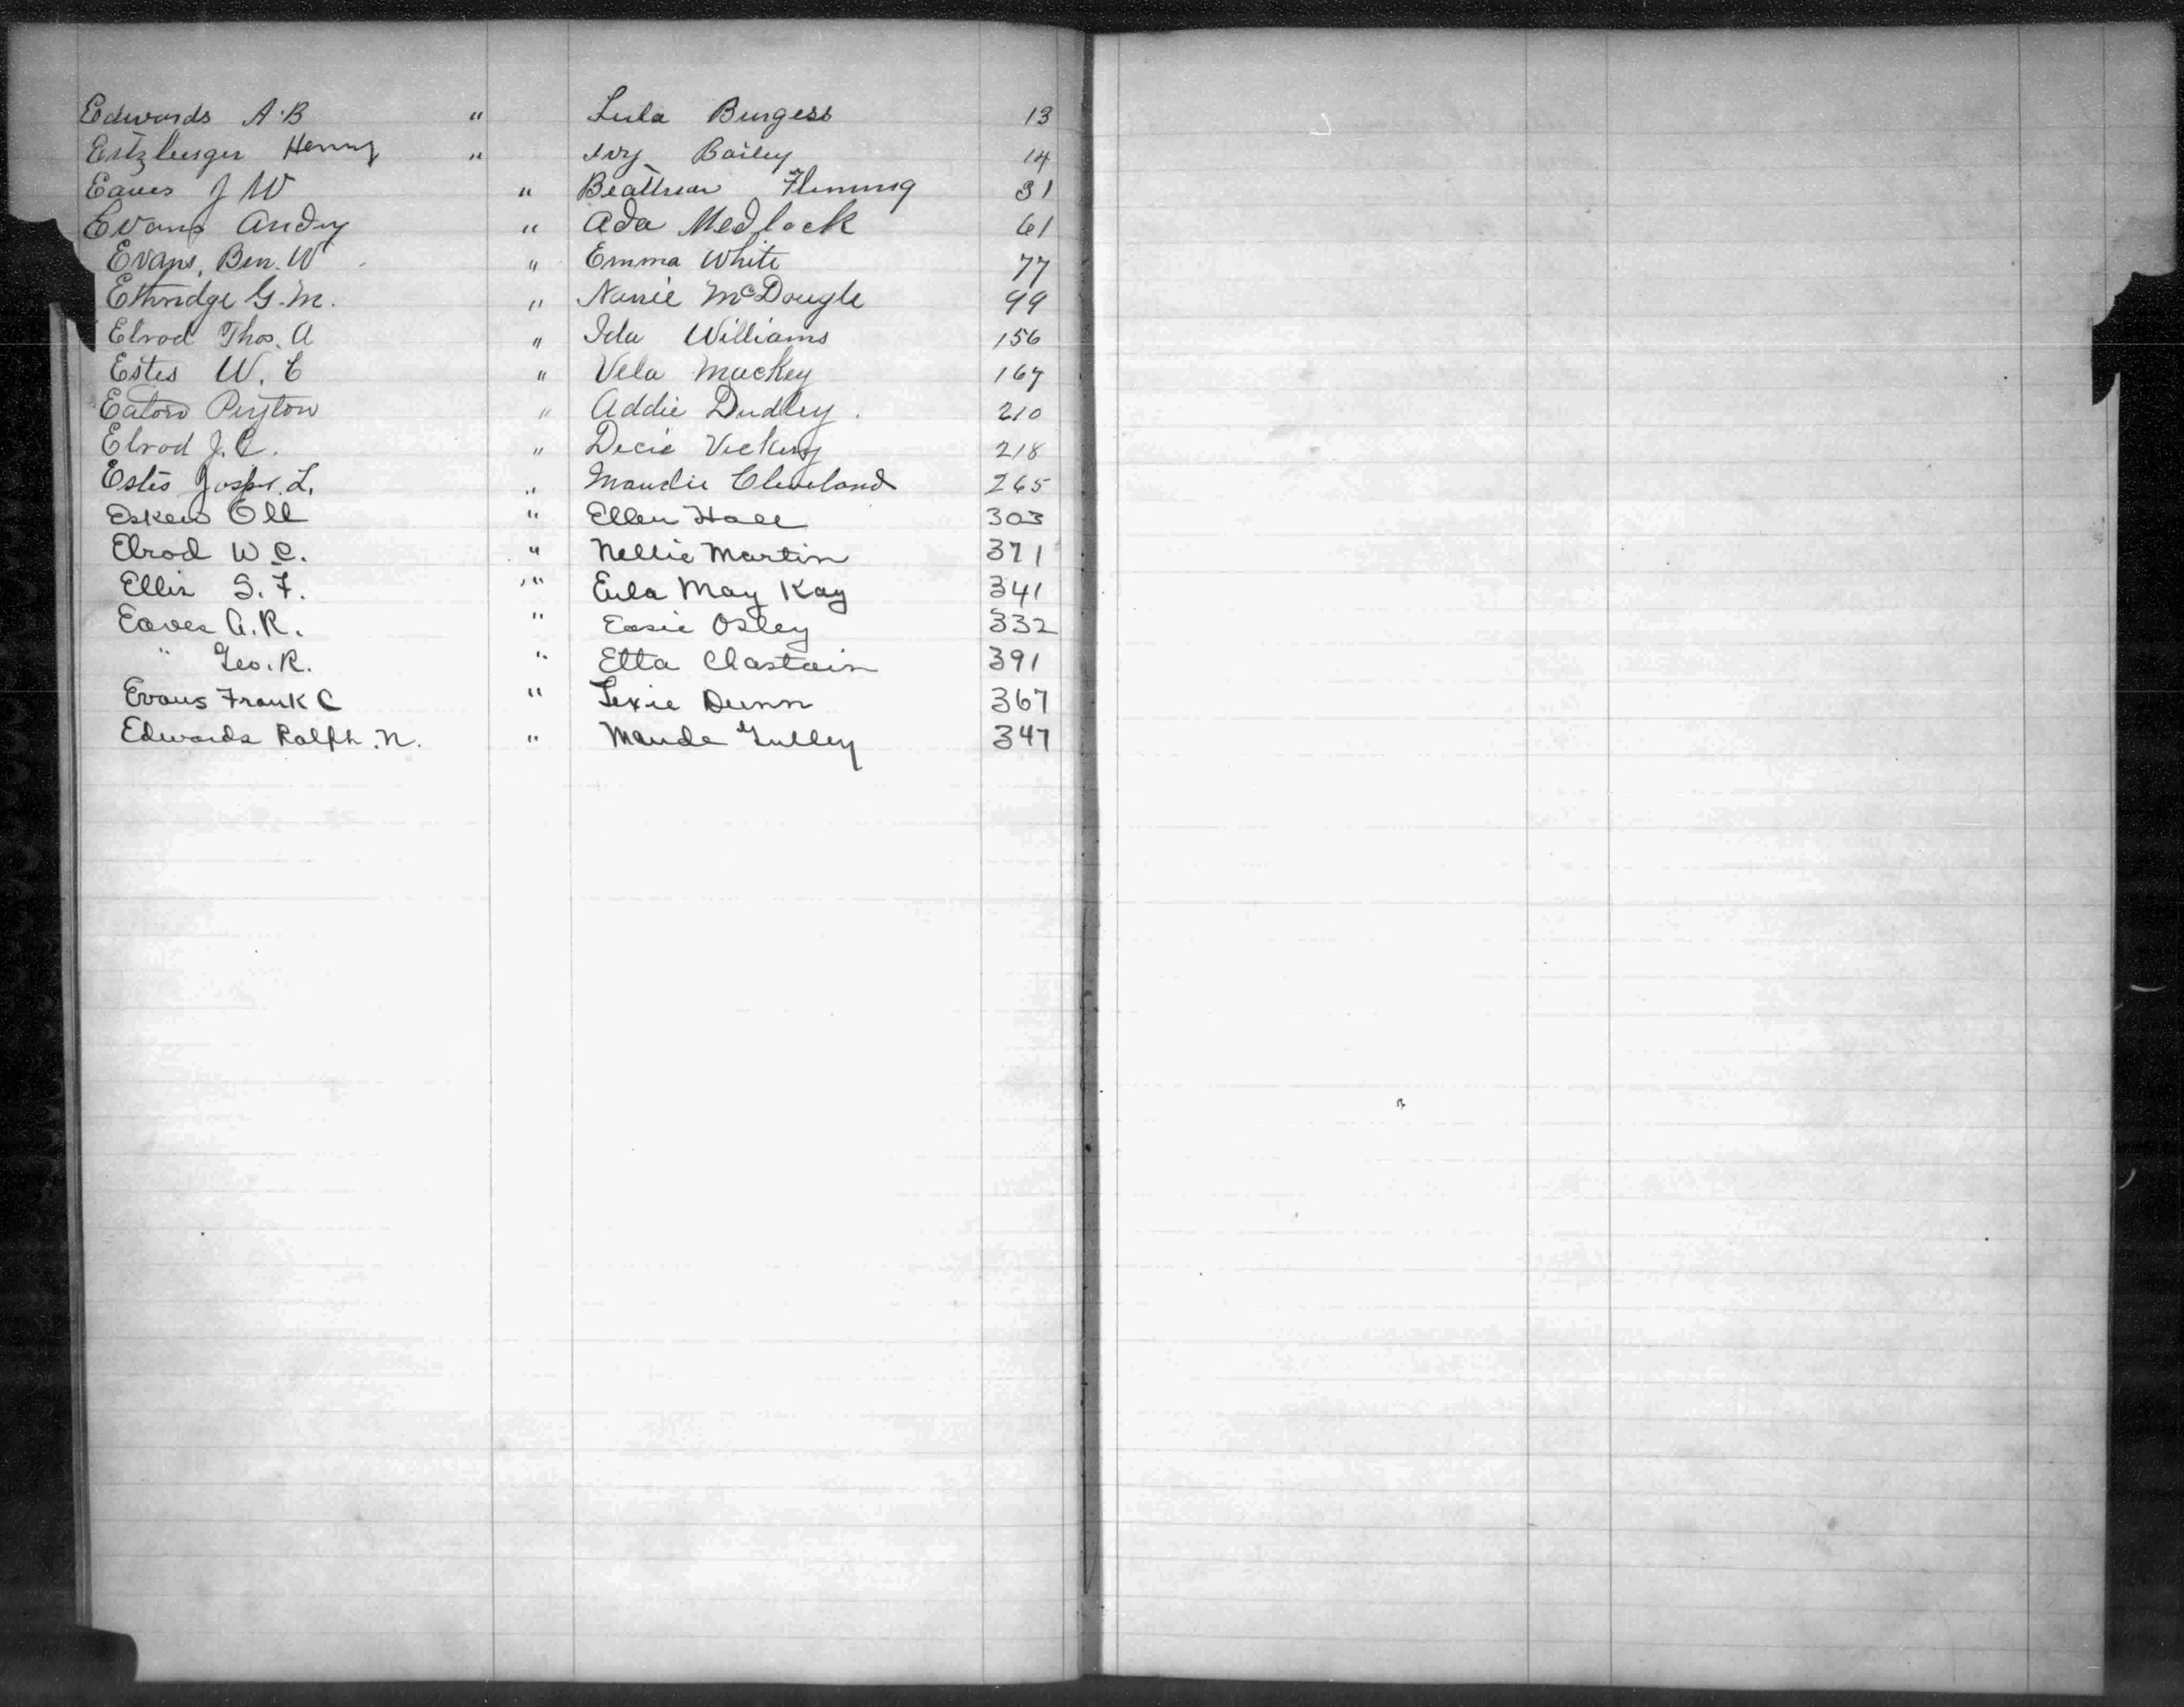 Edwards A.B " Lula Burgess 13
Henry " Ivy Bailey 14
Eaves J W " Fleming 31
Evans Andy " Ada Medlock 61
Evans, Ben. W " Emma White 77
Ethridge G. M. " Nanie McDougle 99
Elrod Thos. A " Ida Williams 156
Estes W. E " Vela Mackey 167
Eaton Peyton " Addie Dudley. 210
Elrod J. C. " Decie Vickery 218
Estes L. " Maudie Cleveland 265
Eskew Oll " Ellen Hall 303
Elrod W C. " Nellie Martin 371
Ellis S. F. " Eula May Kay 341
Eaves A. R. " Essie Osley 332
" Geo. R. " Etta Chastain 391
Evans Frank C " Lexie Dunn 367
Edwards Ralph. N. " Maude Gulley 347